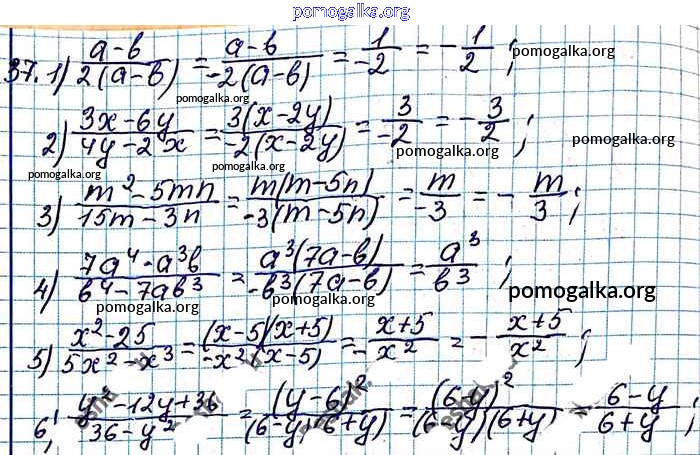 pomogalka.org
37. 1) a-b / 2(a-b) = a-b / -2(a-b) = 1 / -2 = - 1 / 2 ; pomogalka.org
pomogalka.org
2) 3x-6y / 4y-2x = 3(x-2y) / -2(x-2y) = 3 / -2 = - 3 / 2 ; pomogalka.org
pomogalka.org pomogalka.org
3) m²-5mn / 15m-3n = m(m-5n) / -3(m-5n) = m / -3 = - m / 3 ;
4) 7a⁴-a³b / b⁴-7ab³ = a³(7a-b) / -b³(7a-b) = a³ / b³ ; pomogalka.org
pomogalka.org pomogalka.org
5) x²-25 / 5x²-x³ = (x-5)(x+5) / -x²(x-5) = x+5 / -x² = - x+5 / x² ;
6) y²-12y+36 / 36-y² = (y-6)² / (6-y)(6+y) = (6-y)² / (6-y)(6+y) = 6-y / 6+y ;